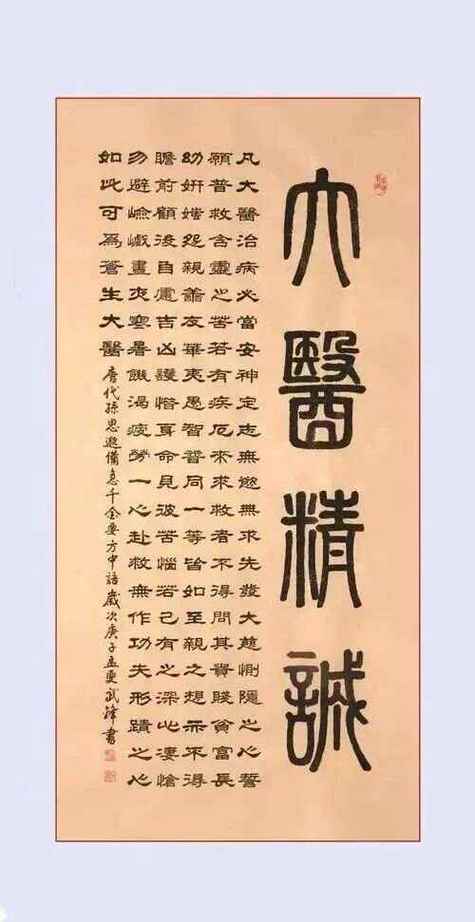 大醫精誠
凡大醫治病必當安神定志無慾無求先發大慈惻隱之心誓
願普救含靈之苦若有疾厄來求救者不得問其貴賤貧富長
幼妍媸怨親善友華夷愚智普同一等皆如至親之想亦不得
瞻前顧後自慮吉凶護惜身命見彼苦惱若己有之深心淒愴
勿避嶮巇晝夜寒暑饑渴疲勞一心赴救無作功夫形蹟之心
如此可為蒼生大醫 唐代孫思邈備急千金要方中語歲次庚子孟夏武鋒書